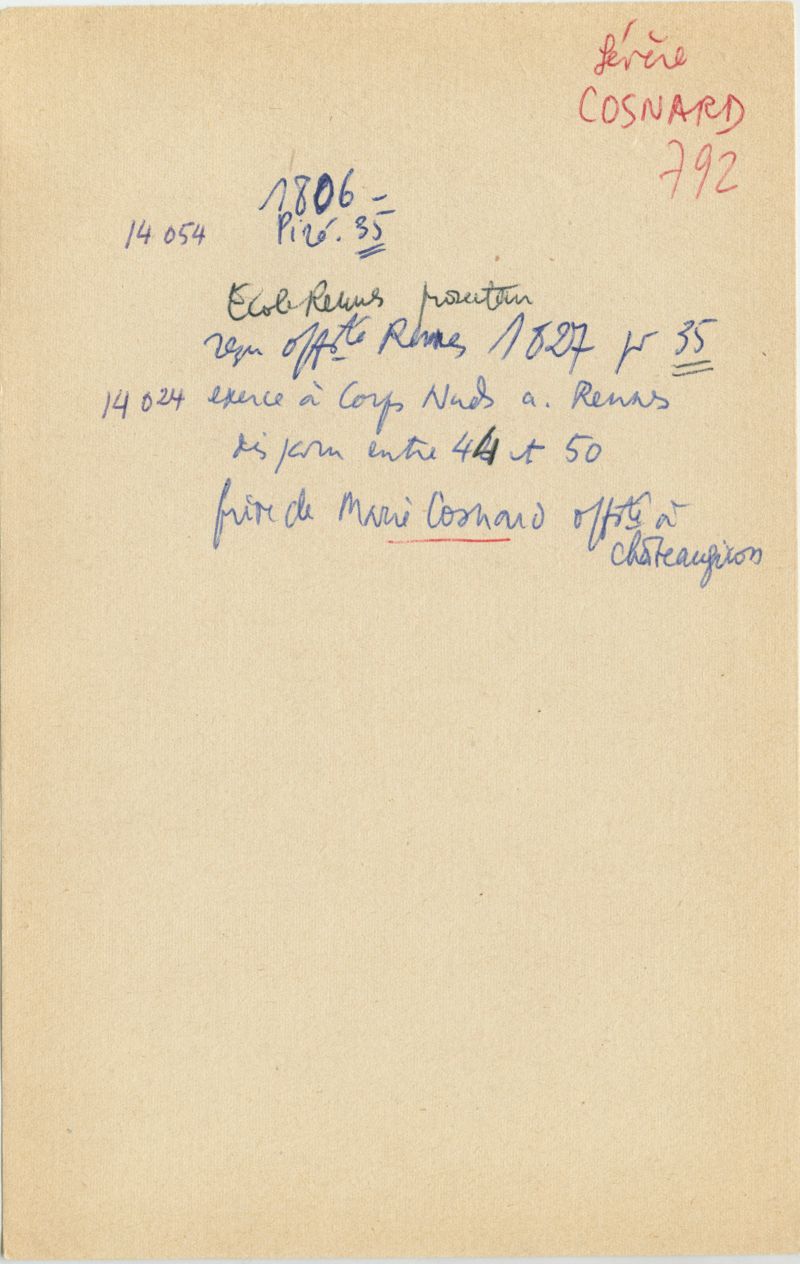 Sévère
COSNARD
792
1806 -
14 054 Piré. 35
Ecole Rennes
reçu offste Rennes 1827 pr 35
14 024 exerce à Corps Nuds a. Rennes
disparu entre 44 et 50
frère de Marie Cosnard offste à
Châteaugiron